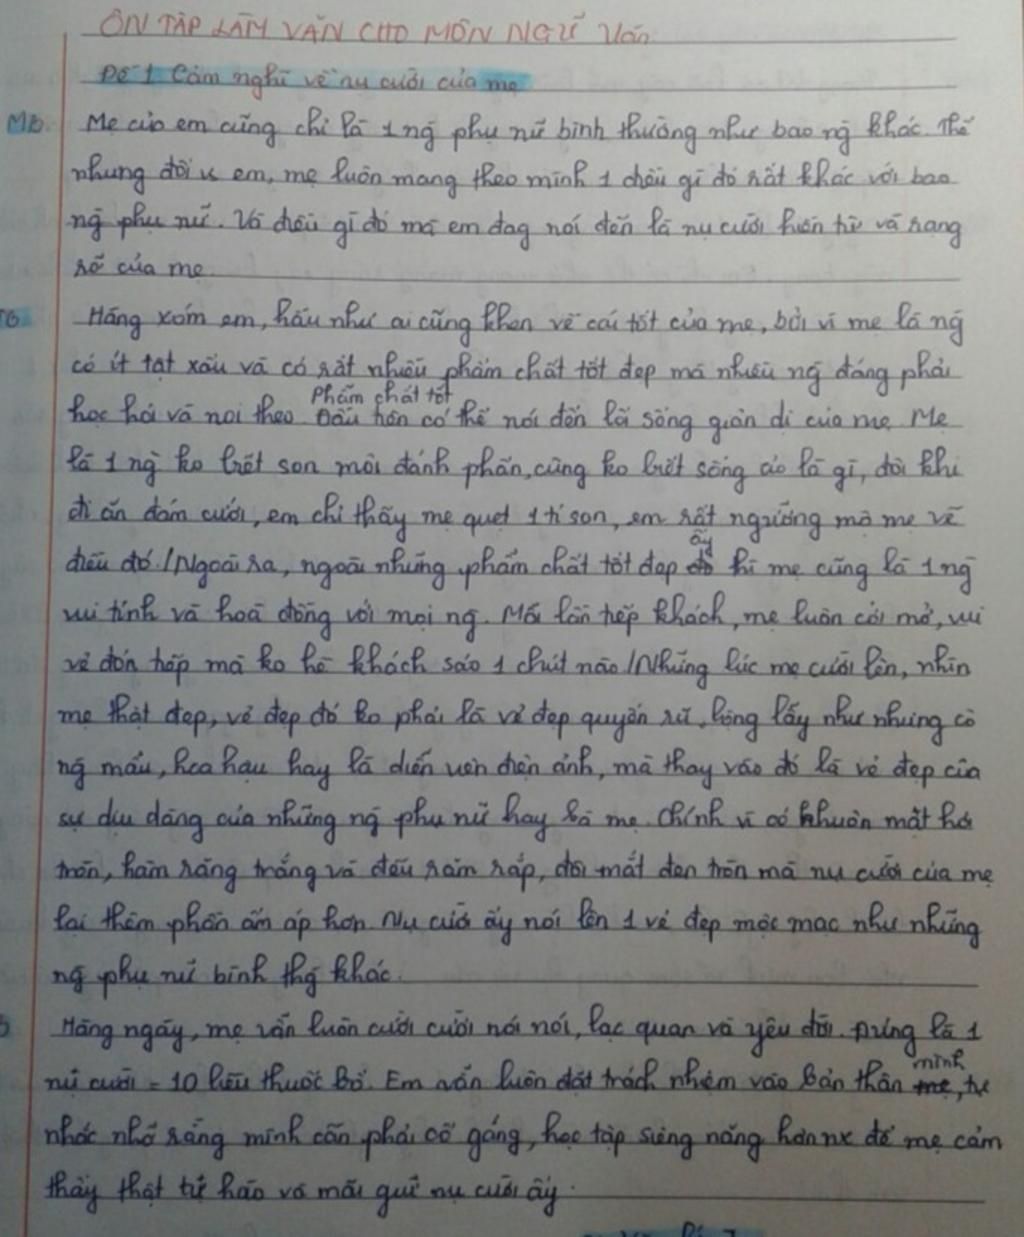 ÔN TẬP LÀM VĂN CHO MÔN NGỮ Văn
Đề 1. Cảm nghĩ về nụ cười của mẹ
MB Mẹ của em cũng chỉ là 1 ng̀ phụ nữ bình thường như bao ng̀ khác. Thế
nhưng đối v em, mẹ luôn mang theo mình 1 điều gì đó rất khác với bao
ng̀ phụ nữ. Và điều gì đó mà em đag nói đến là nụ cười hiền từ và rạng
rỡ của mẹ.
TB Hàng xóm em, hầu như ai cũng khen về cái tốt của mẹ, bởi vì mẹ là ng̀
có ít tật xấu và có rất nhiều phẩm chất tốt đẹp mà nhiều ng̀ đáng phải
học hỏi và noi theo. Phẩm chất tốt Đầu tiên có thể nói đến lối sống giản dị của mẹ. Mẹ
là 1 ng̀ ko biết son môi đánh phấn, cũng ko biết sống ảo là gì, đôi khi
đi ăn đám cưới, em chỉ thấy mẹ quẹt 1 tí son, em rất ngưỡng mộ mẹ về
điều đó./Ngoài ra, ngoài những phẩm chất tốt đẹp ấy thì mẹ cũng là 1 ng̀
vui tính và hoà đồng với mọi ng̀. Mỗi lần tiếp khách, mẹ luôn cởi mở, vui
vẻ đón tiếp mà ko hề khách sáo 1 chút nào/Những lúc mẹ cười lên, nhìn
mẹ thật đẹp, vẻ đẹp đó ko phải là vẻ đẹp quyến rũ, lộng lẫy như những cô
ng̀ mẫu, hoa hậu hay là diễn viên điện ảnh, mà thay vào đó là vẻ đẹp của
sự dịu dàng của những ng̀ phụ nữ hay bà mẹ. Chính vì có khuôn mặt hơi
tròn, hàm răng trắng và đều răm rắp, đôi mắt đen tròn mà nụ cười của mẹ
lại thêm phần ấm áp hơn. Nụ cười ấy nói lên 1 vẻ đẹp mộc mạc như những
ng̀ phụ nữ bình thg̀ khác.
Hàng ngày, mẹ vẫn luôn cười cười nói nói, lạc quan và yêu đời. Đúng là 1
nụ cười = 10 liều thuốc bổ. Em vẫn luôn đặt trách nhiệm vào bản thân mình, tự
nhắc nhở rằng mình cần phải cố gắng, học tập siêng năng hơn nx để mẹ cảm
thấy thật tự hào và mãi giữ nụ cười ấy.